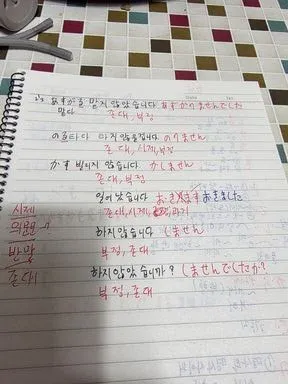 あずかる 맡지 않았습니다 あずかりませんでした
맡다 존대, 부정
のる타다 타지 않습니다 のりません
존대, 시제, 부정
かす 빌리지 않습니다 かしません
존대, 부정
일어났습니다 おきました
시제 존대, 시제, 과거
의문문 하지 않습니다 しません
반말 부정, 존대
존대 하지 않았습니까? しませんでしたか?
부정, 존대